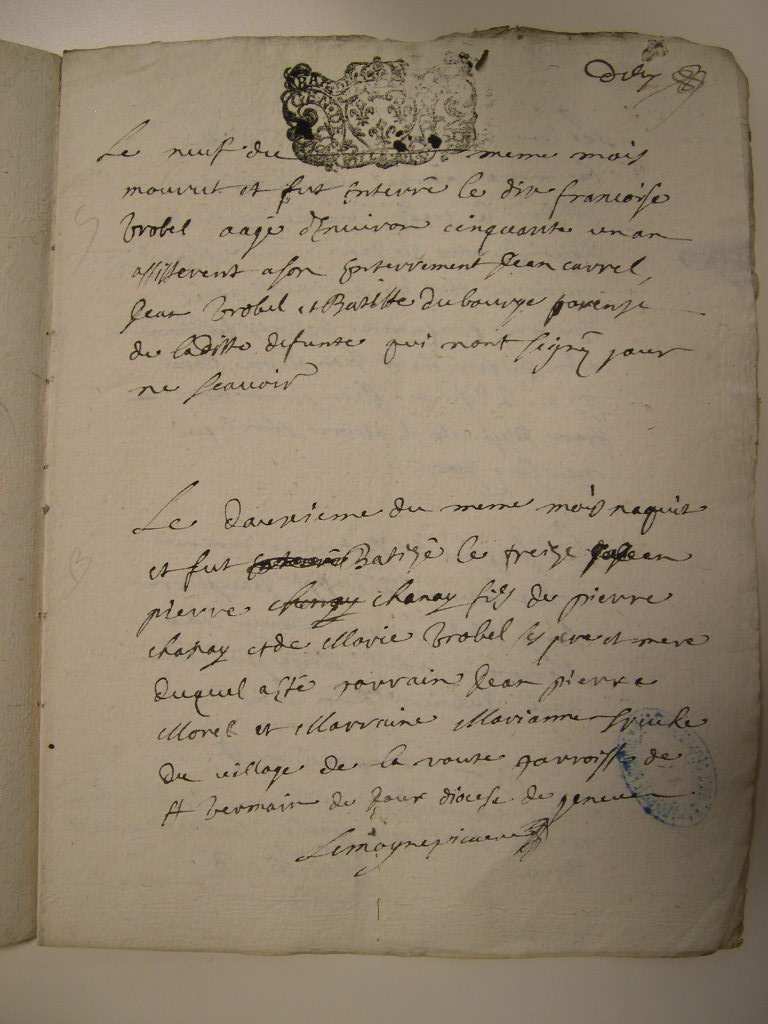 Le neuf du meme mois
mourut et fut Enterré le dix francoise
Vrobel aagé d'Environ cinquante un an
assisterent a son Enterrement Jean carrel
Jean Vrobel et Batitte du bourge parense
de laditte defunte qui nont signé pour
ne scavoir
Le douxieme du meme mois naquit
et fut Batizé le treize Jean
pierre chanay fils de pierre
chanay et de Marie Vrobel ses pere et mere
duquel a esté parrain Jean pierre
Morel et Marraine Marianne
du village de la route parroisse de
St Germain de Joux diocese de geneve
Lemoyne vicaire